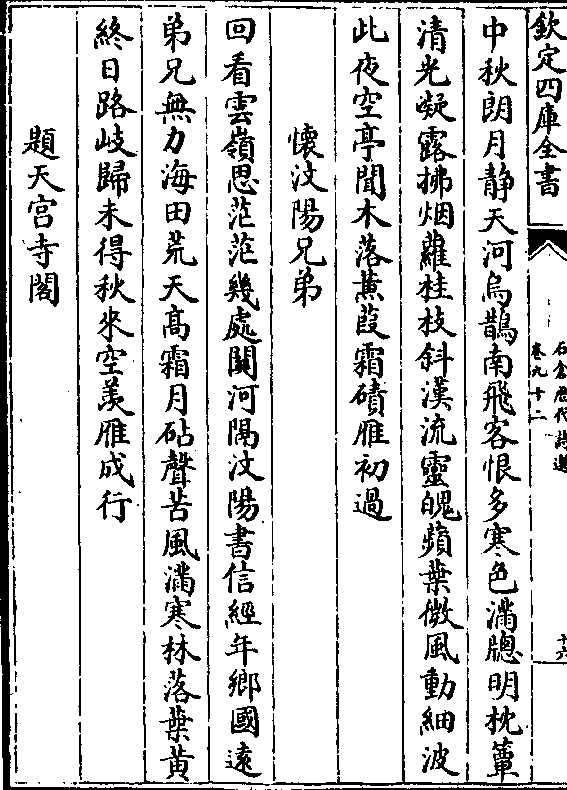 欽定四庫全書
石倉歷代詩選
卷九十二
十六
中秋朗月静天河烏鵲南飛客恨多寒色滿牕明枕簟
清光凝露拂烟蘿桂枝斜漢流靈魄蘋葉微風動細波
此夜空亭聞木落蒹葭霜磧雁初過
懷汶陽兄弟
回看雲嶺思茫茫幾處關河隔汶陽書信經年鄉國遠
弟兄無力海田荒天髙霜月砧聲苦風滿寒林落葉黃
終日路岐歸未得秋來空羡雁成行
題天宫寺閣